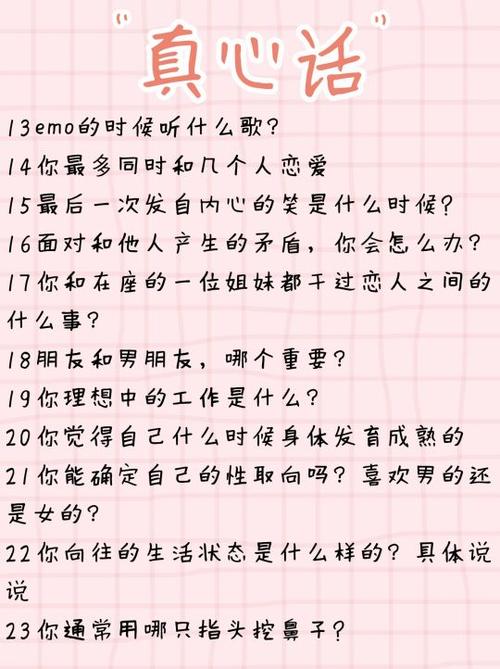 "真心话"
13emo的时候听什么歌?
14你最多同时和几个人恋爱
15最后一次发自内心的笑是什么时候?
16面对和他人产生的矛盾，你会怎么办?
17你和在座的一位姐妹都干过恋人之间的
什么事?
18朋友和男朋友，哪个重要?
19你理想中的工作是什么?
20你觉得自己什么时候身体发育成熟的
21你能确定自己的性取向吗? 喜欢男的还
是女的?
22你向往的生活状态是什么样的? 具体说
说
23你通常用哪只指头挖鼻子?